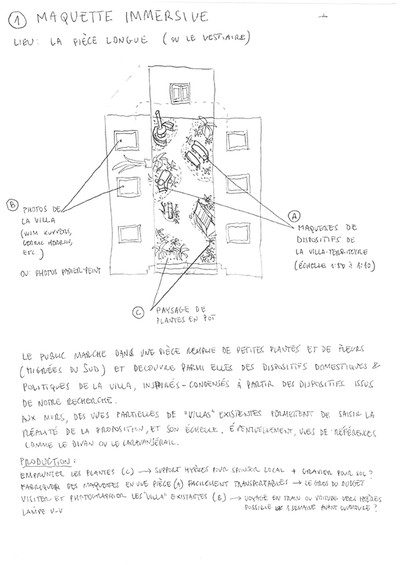 1 MAQUETTE IMMERSIVE
LIEU: LA PIÈCE LONGUE (OU LE VESTIAIRE)
B PHOTOS DE
LA VILLA
(WIM
ETC.)
OU PHOTOS PAPIER PEINT
A
MAQUETTES DE
DISPOSITIFS DE
LA VILLA-TERRITOIRE
(ÉCHELLE 1:50 À 1:10)
C PAYSAGE DE
PLANTES EN POT
LE PUBLIC MARCHE DANS UNE PIÈCE REMPLIE DE PETITES PLANTES ET DE FLEURS
(MIGRÉES DU SUD) ET DECOUVRE PARMI ELLES DES DISPOSITIFS DOMESTIQUES &
POLITIQUES DE LA VILLA, INSPIRÉS-CONDENSÉS À PARTIR DES DISPOSITIFS ISSUS
DE NOTRE RECHERCHE.
AUX MURS, DES VUES PARTIELLES DE "VILLAS" EXISTENTES PERMETTENT DE SAISIR LA
RÉALITÉ DE LA PROPOSITION, ET SON ÉCHELLE. ÉVENTUELLEMENT, VUES DE RÉFÉRENCES
COMME LE DIVAN OU LE CARAVANSÉRAIL.
PRODUCTION:
EMPRUNTER LES PLANTES (C) → SUPPORT HYÈRES POUR SPONSOR LOCAL + GRAVIER POUR SOL?
FABRIQUER DES MAQUETTES EN UNE PIÈCE (A) FACILEMENT TRANSPORTABLES → LE GROS DU BUDGET
VISITER ET PHOTOGRAPHIER LES "VILLA" EXISTANTES (B) → VOYAGE EN TRAIN OU VOITURE VERS HYÈRES
POSSIBLE SEMAINE AVANT OUVERTURE?
LAMPE U-V